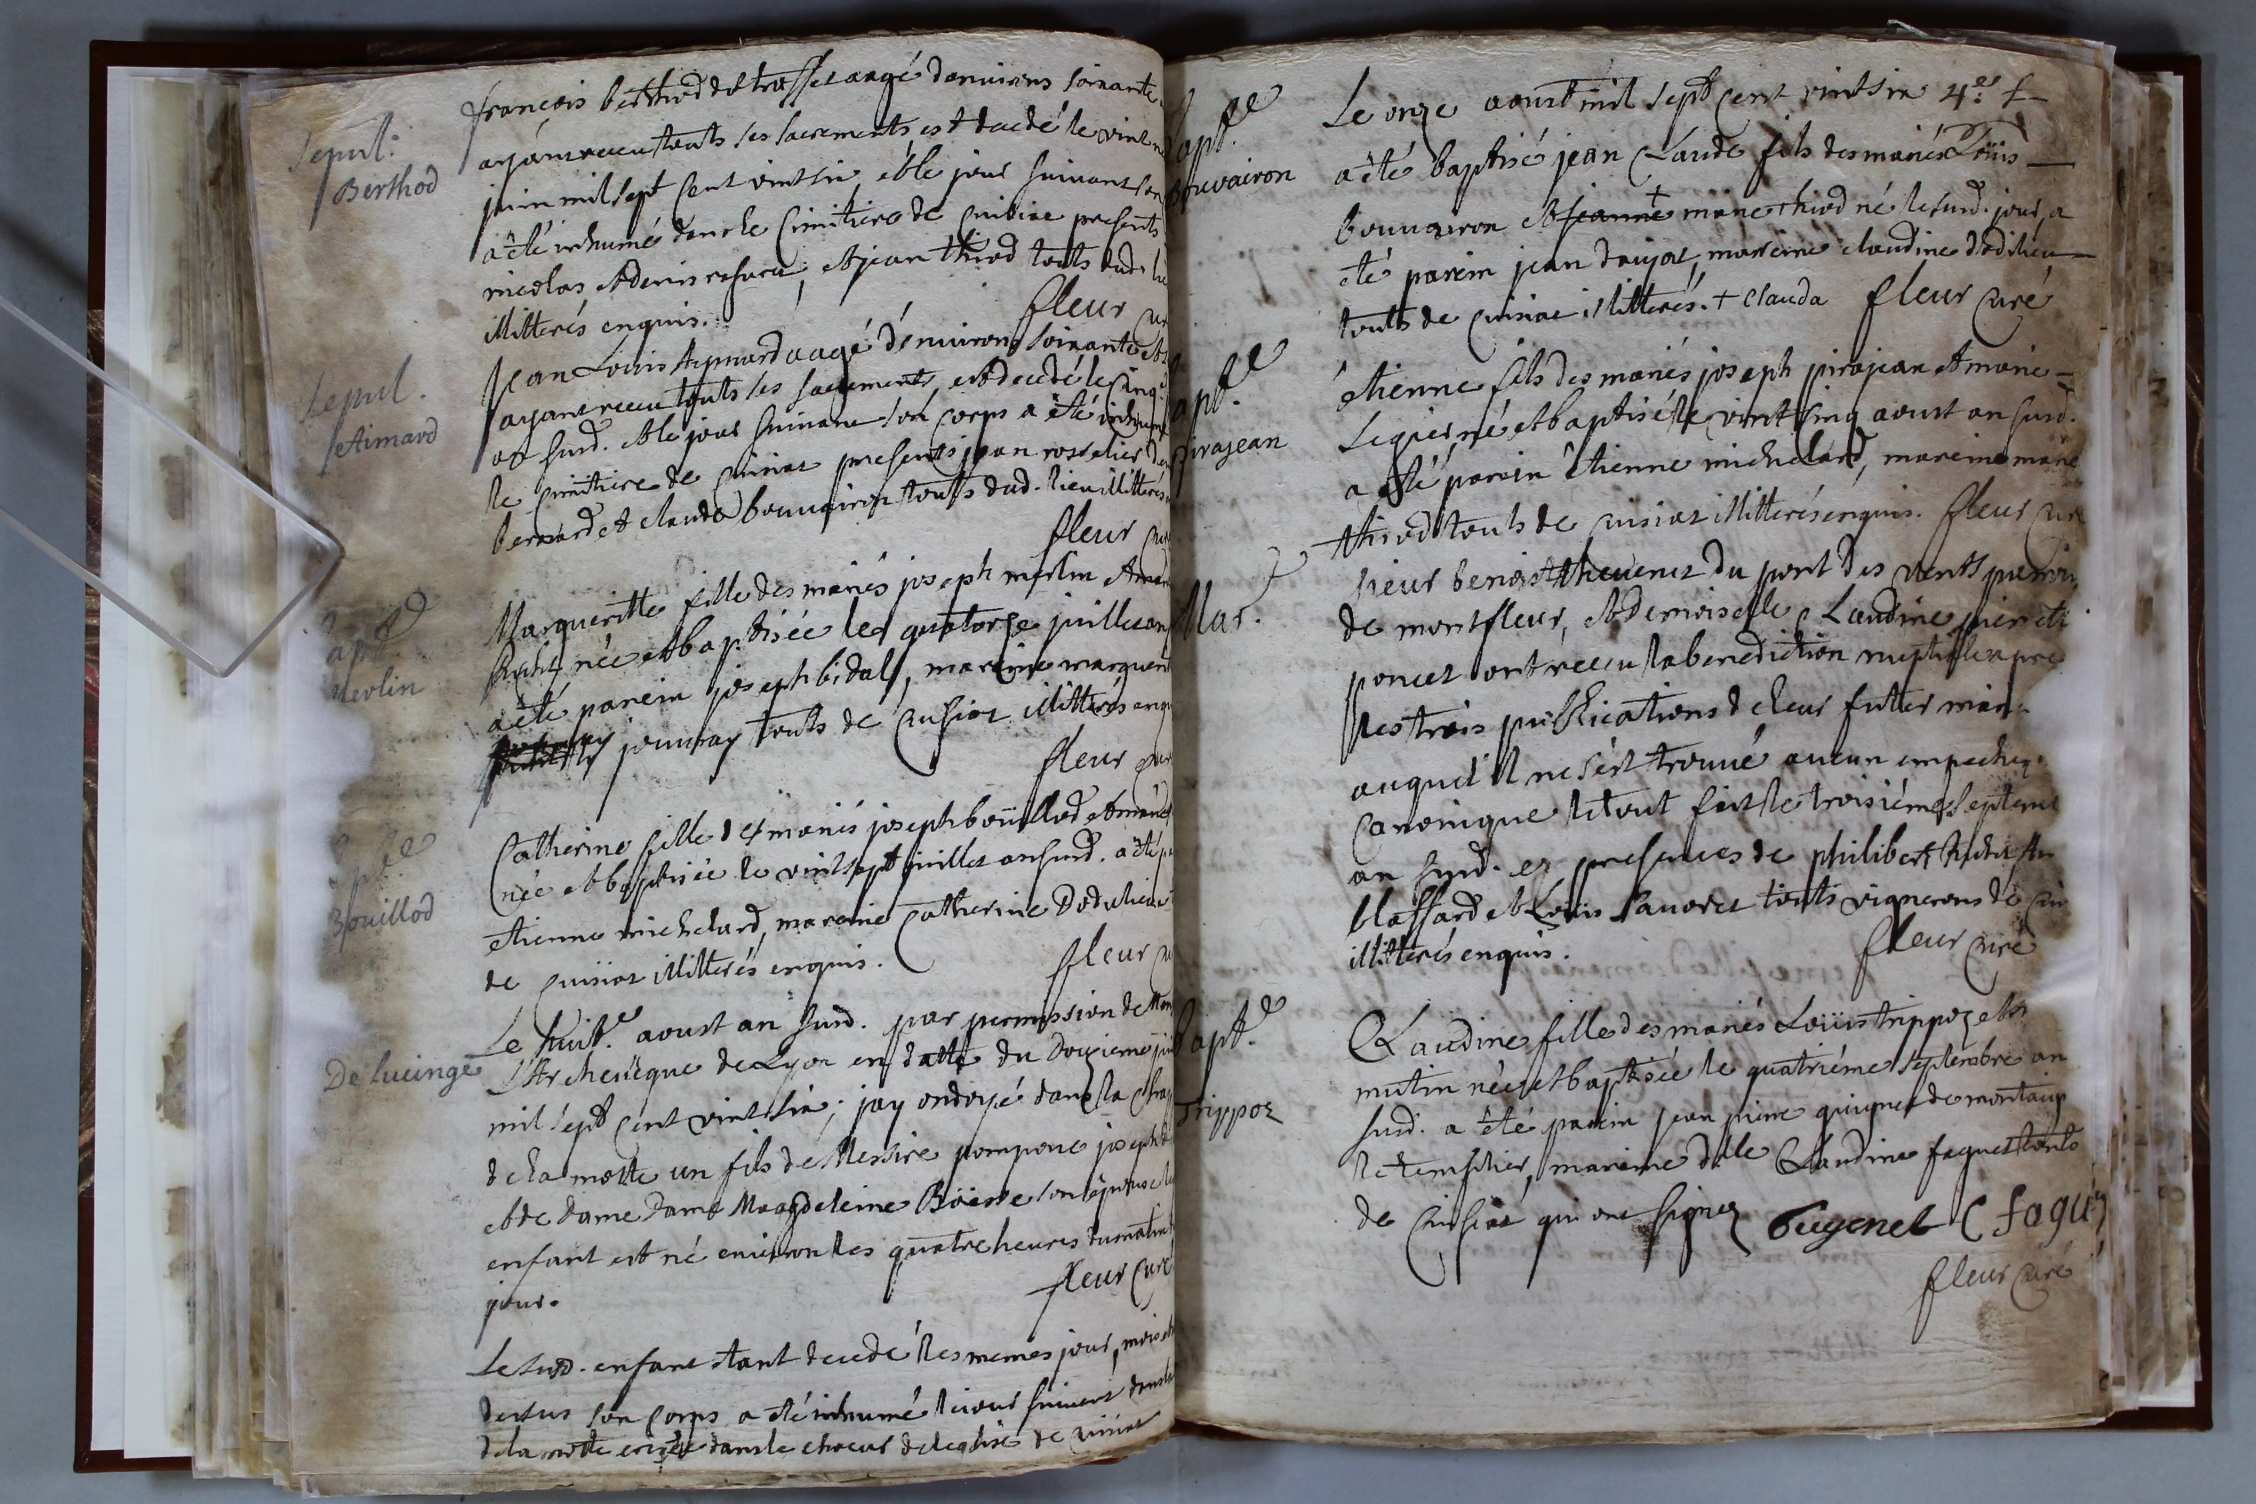 Sepul:
Berthod
françois berthod de tresse aagé denuirons soixante
ayant receu touts ses sacrements est decedé le vint
juin mil sept cent vintsix, et le jour suiuant son
a êté inhumé dans le cimitiere de cuisiat presents
nicolas, et denis rafura, et jean thiod touts dud. lieu
illitterés enquis.
fleur cur
Sepul.
Aimard
Jean Louis Aymard aagé d'enuirons soixante et
ayant receu touts ses sacrements, est decedé le cinq
an surd. et le jour suiuant son corps a êté inhumé
le cimitiere de cuisiat presents jean rosselier
bernard et claude bouuairon touts dud. lieu illitterés
fleur cur
bapt.e
Merlin
Margueritte fille des mariés joseph merlin et mar
née et baptisée le quatorze juillet an
a êté parein joseph bidal, mareine marguerit
jounay touts de cuisiat illitterés enqu
fleur cur
Bouillod
Catherine fille des mariés joseph boüillod et
née et baptisée le vintsept juillet an surd. a êté pa
etienne michelard, mareine Catherine Dodilieu
de cuisiat illitterés enquis.
fleur cu
De Lucinge
Le huit.e aoust an surd. par permission de Mon
L'Archeuêque de Lyon en datte du douzieme jui
mil sept cent vintsix; jay ondoyé dans la chap
de la motte un fils de Messire pompone joseph de
et de dame dame Magdeleine Boisse son épouse le
enfant est né enuiron les quatre heures du matin
jour.
fleur curé
Le surd. enfant étant decedé les memes jour, mois et
dessus son corps a été inhumé le jour suiuant dans la
de la motte erigée dans le choeur de leglise de cuisiat
bapt.e
Bouvairon
Le onze aoust mil sept cent vintsix
a êté baptisé jean Claude fils des mariés Loüis
bouuairon et jeanne + marie thiod né le surd. jour, a
êté parein jean daujat, mareine claudine dodilieu
touts de cuisiat illitterés. + Clauda fleur curé
bapt.e
Pirajean
étienne fils des mariés joseph pirajean et marie
Leguier né et baptisé le vint cinq aoust an surd.
a esté parein étienne michelard, mareine marie
thiod touts de cuisiat illitterés enquis. fleur curé
Mar.
sieur benoist theuenet du pont des vents parroi
de montfleur, et demoiselle Claudine pierrette
poncet ont receu la benediction nuptiale apre
les trois publications de leur futur maria
auquel il ne s'est trouué aucun empechem
canonique le tout fait le troisiéme septemb
an surd. en presences de philibert
blassard et Loüis sauoret touts vignerons de cui
illitterés enquis. fleur curé
bapt.e
Trippoz
Claudine fille des mariés Loüis trippoz et
mutin née et baptisée le quatriéme septembre an
surd. a été parein jean pierre guigner de montaig
le templier, mareine dlle Claudine faguet touts
de Cuisiat qui ont signez Gugenet C fagu
fleur curé